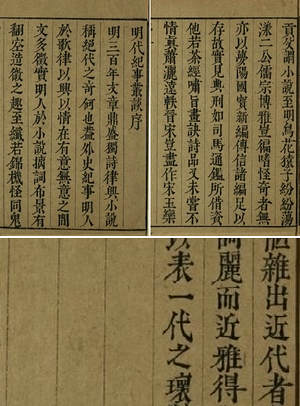 明代紀事叢談序
明三百年文章鼎盛獨詩律與小說
稱絕代之奇何也蓋外史紀事明人
於歌律以興以情在有意無意之間
文多徵實明人於小說摛詞布景有
翻空造微之趣至纖若錦機怪同鬼
貢父謂小說至明鳥花猿子紛紛蕩
漾二公儒宗博雅豈徧嗜怪奇者無
亦以夢陽國寶新編傳信諸編足以
存故實見典刑如司馬通鑑所借資
他若茶經嘯旨畫訣詩品又未嘗不
情真蕭灑逸軼晉宋豈盡作宋玉欒
雜出近代者
麗而近雅得
以表一代之瓌